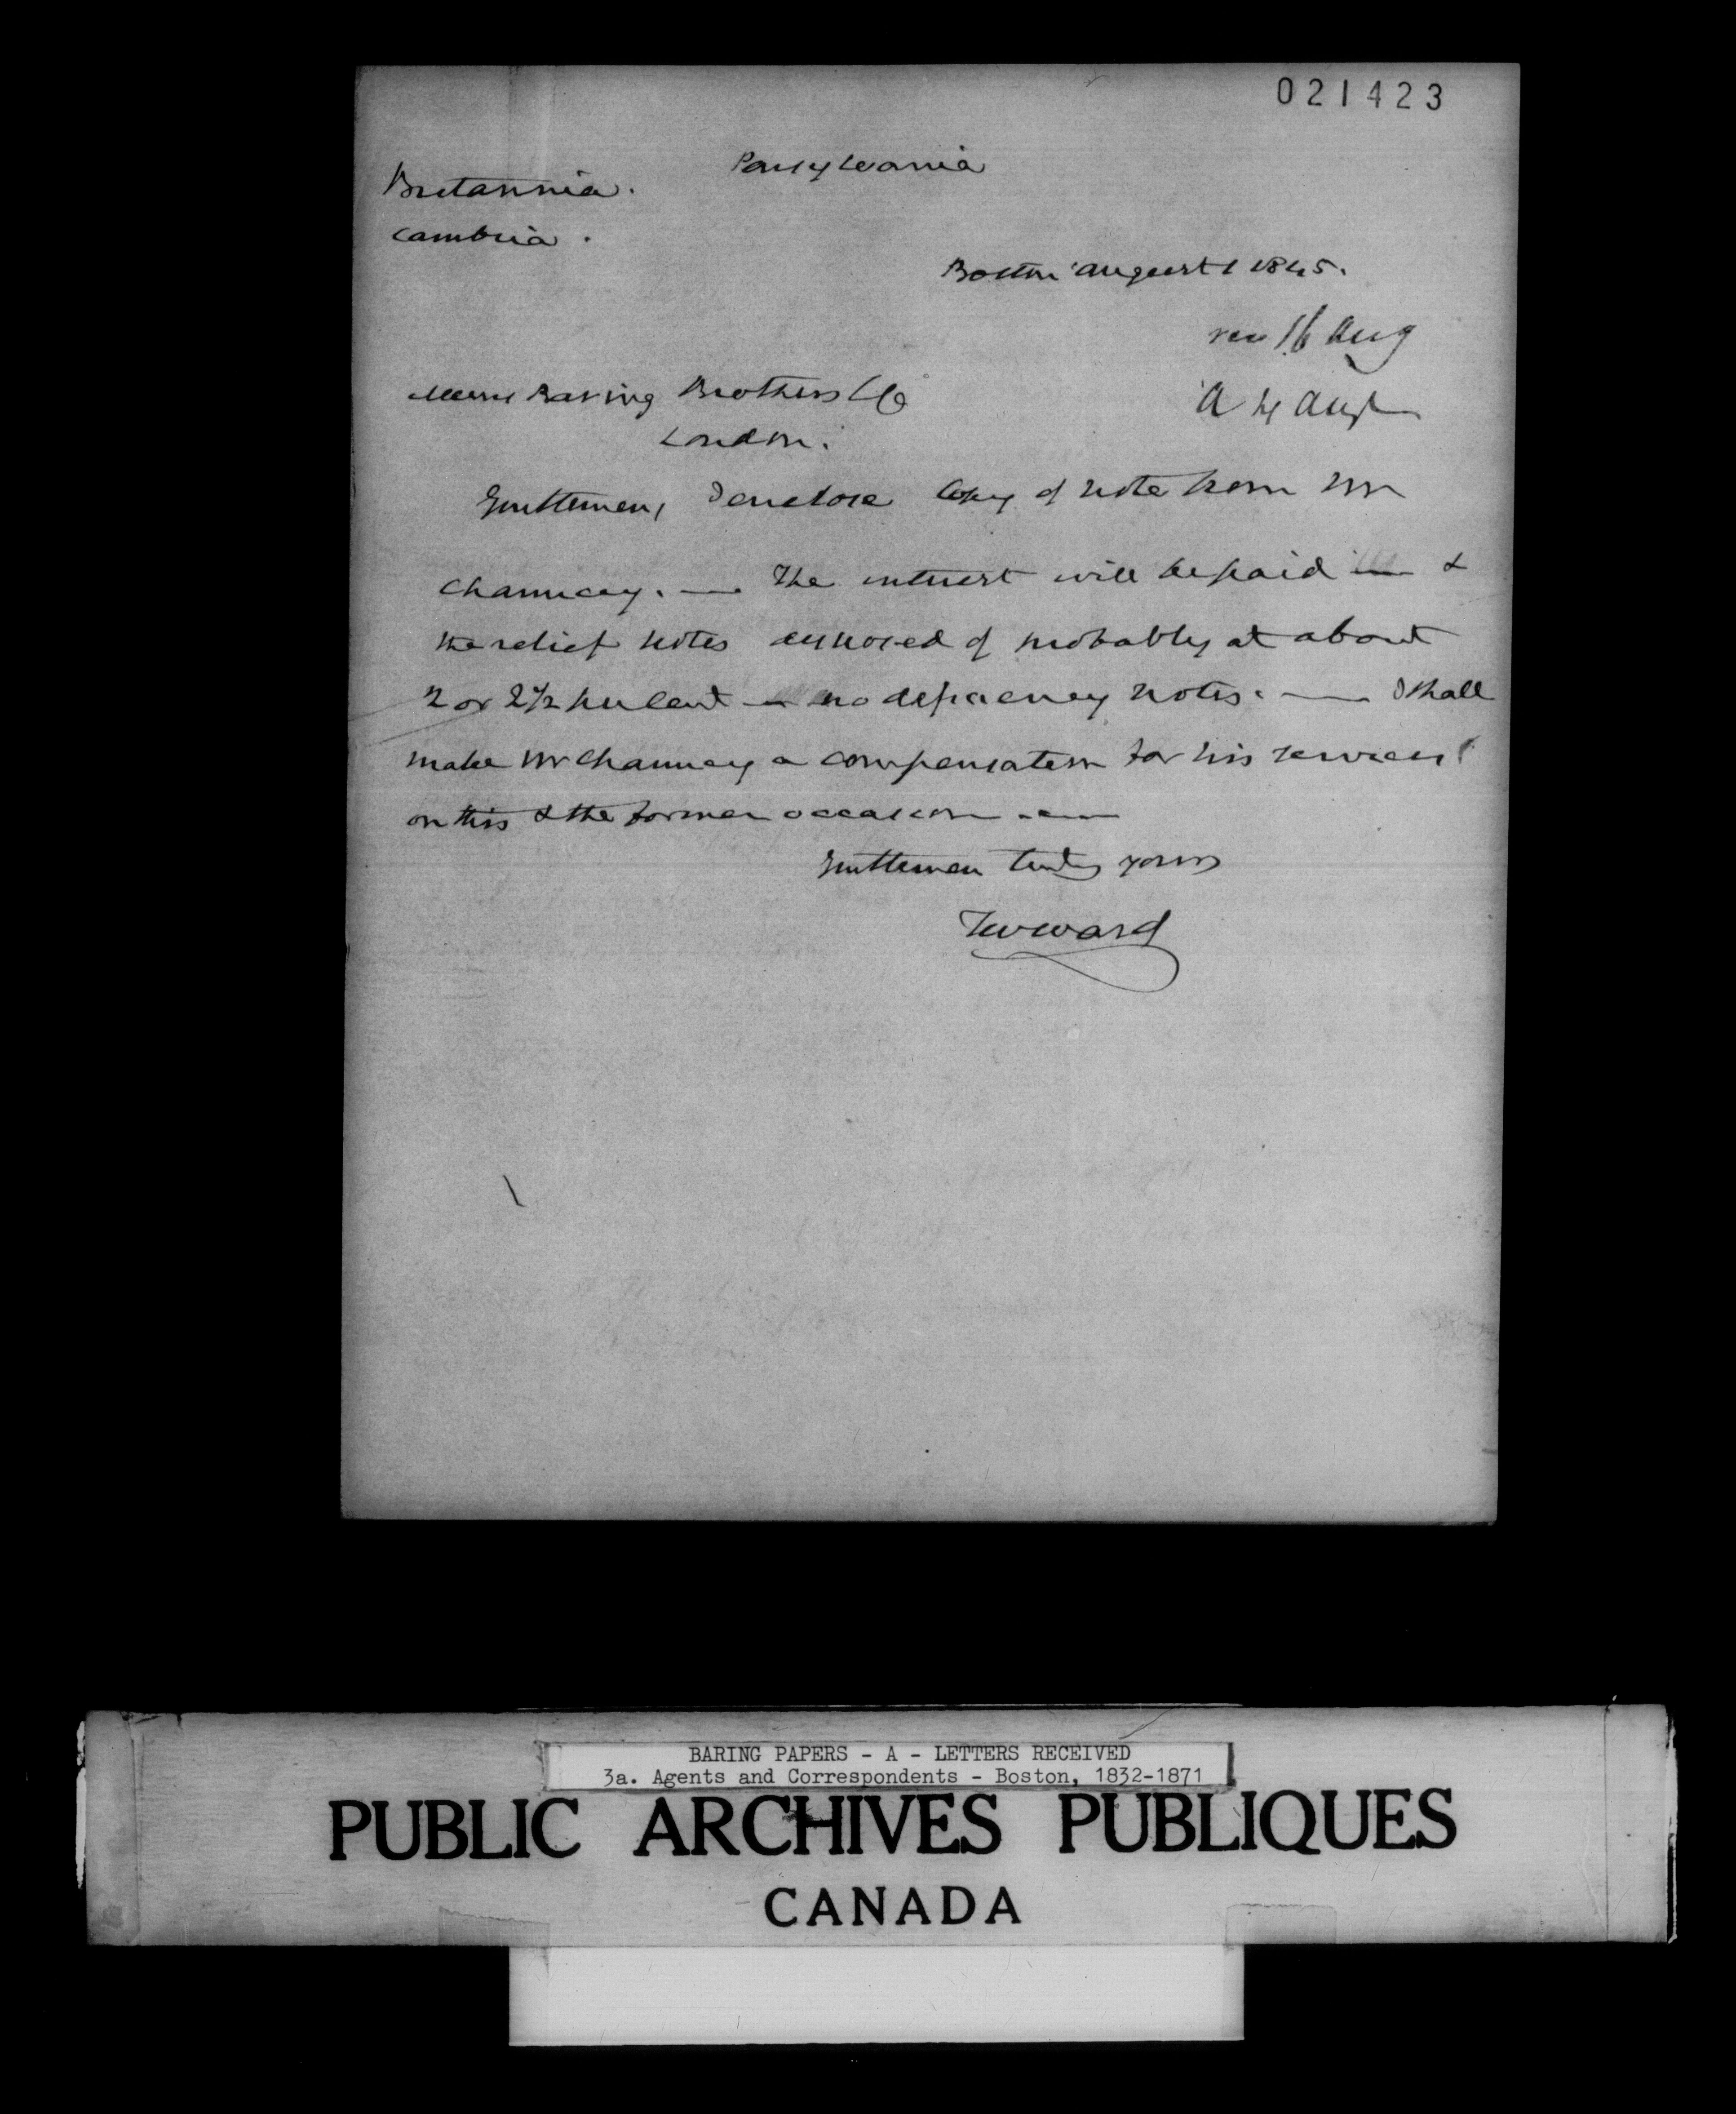 021423
Pensylvania
Britannia.
Cambria.
Boston August 1 1845.
rec 16 Aug
A 4 Aug
Messrs Baring Brothers & Co
London.
Gentlemen, I enclose Copy of note from Mr
Chauncey. — The interest will be paid &
the relief notes disposed of probably at about
2 or 2½ per Cent — no deficiency notes. — I shall
make Mr Chauncey a compensation for his services
on this & the former occasion —
Gentlemen truly yours
TWWard
BARING PAPERS - A - LETTERS RECEIVED
3a. Agents and Correspondents - Boston, 1832-1871
PUBLIC ARCHIVES PUBLIQUES
CANADA